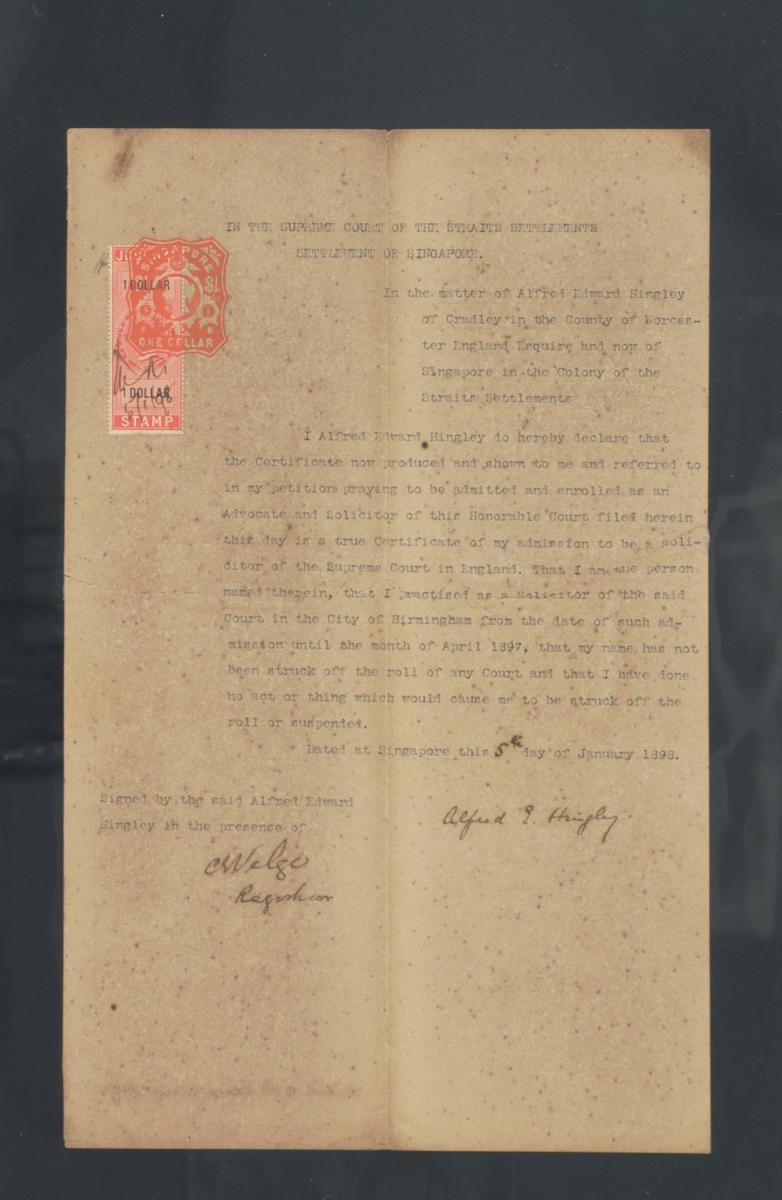 IN THE SUPREME COURT OF THE STRAITS SETTLEMENTS
SETTLEMENT OF SINGAPORE.
SINGAPORE
1 DOLLAR
$1
ONE DOLLAR
1 DOLLAR
STAMP
In the matter of Alfred Edward Hingley
of Cradley in the County of Worces-
ter England Esquire and now of
Singapore in the Colony of the
Straits Settlements
I Alfred Edward Hingley do hereby declare that
the Certificate now produced and shown to me and referred to
in my petition praying to be admitted and enrolled as an
Advocate and Solicitor of this Honorable Court filed herein
this day is a true Certificate of my admission to be a soli-
citor of the Supreme Court in England. That I am the person
named therein, that I practised as a Solicitor of the said
Court in the City of Birmingham from the date of such ad-
mission until the month of April 1897, that my name has not
been struck off the roll of any Court and that I have done
no act or thing which would cause me to be struck off the
roll or suspended.
Dated at Singapore this 5th day of January 1898.
Signed by the said Alfred Edward
Hingley in the presence of
Alfred E. Hingley
Registrar